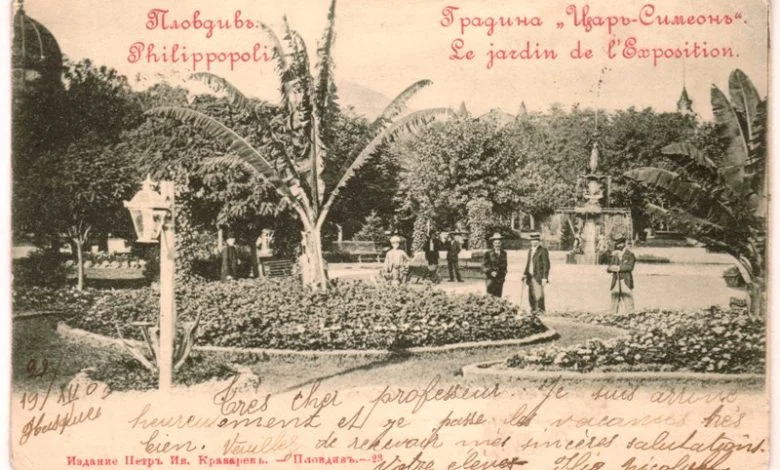 Пловдивъ.
Градина „Царь-Симеонъ“.
Philippopoli
Le jardin de l'Exposition.
19/VII 09
Très cher professeur. Je suis arrivé
heureusement et je passe les vacances très
bien. Veuillez de recevoir mes sincères salutations.
Votre élève
Издание Петръ Ив. Краваревъ. — Пловдивъ. — 23.